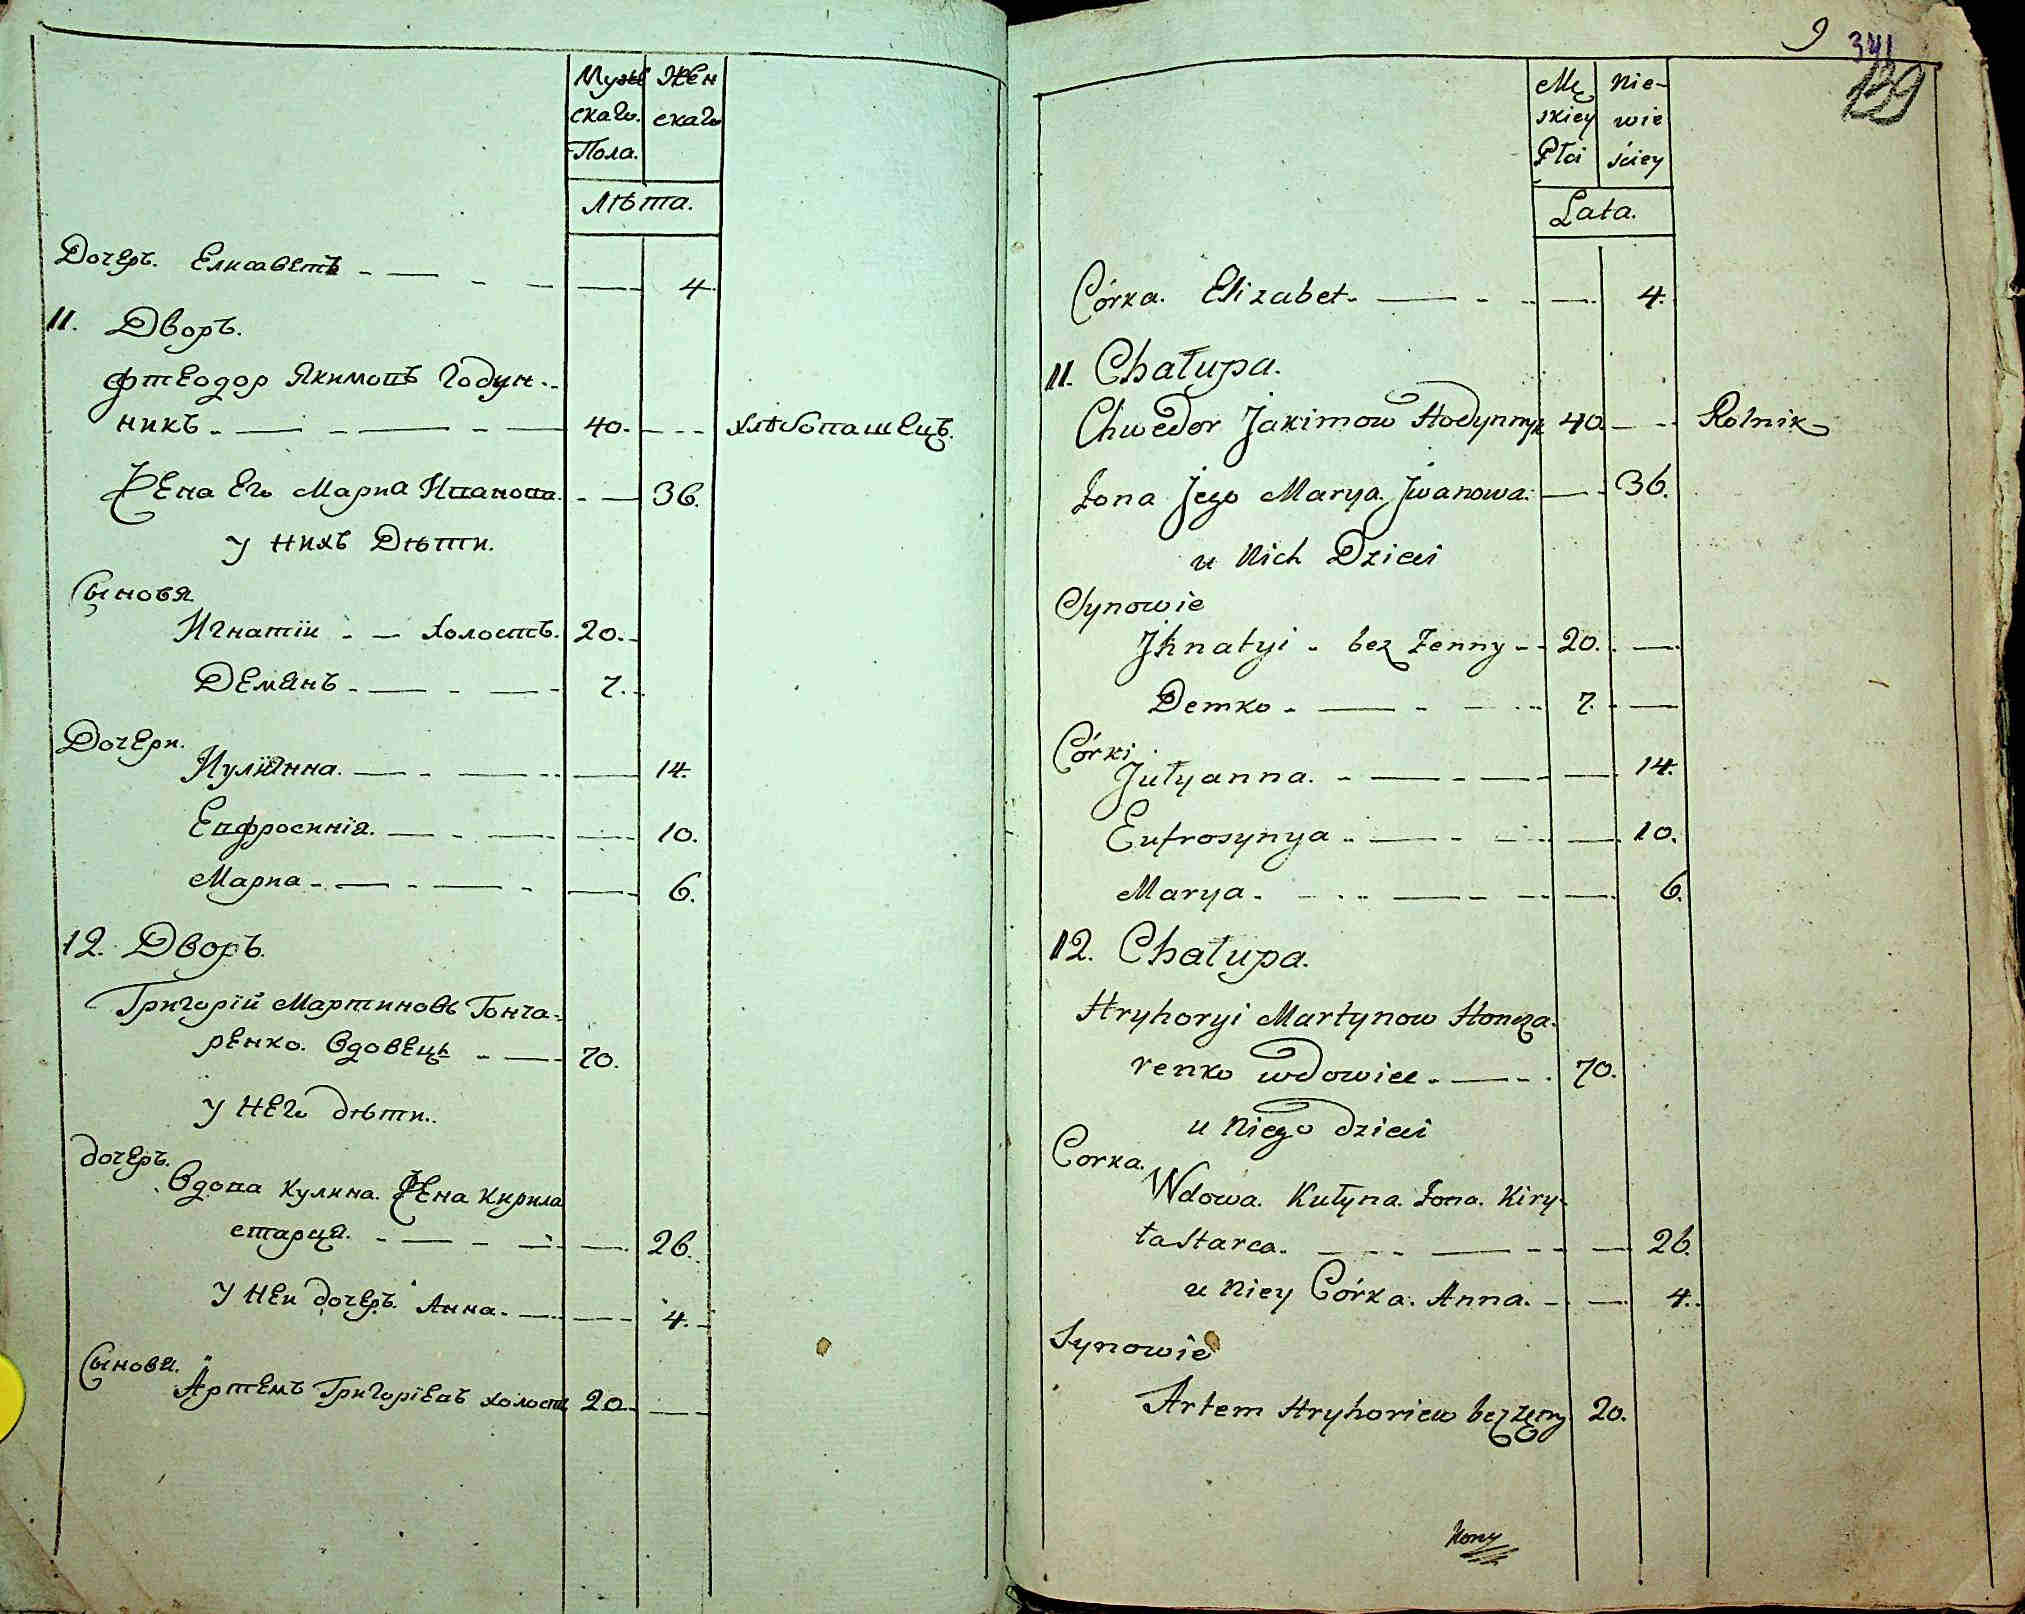 Мужескаго Пола. Женскаго
Лѣта.
Дочеръ. Елисаветъ - — - - — 4.
11. Дворъ.
Фтеодор Якимовъ Годун-
никъ - — - — - — 40. - - - хлѣбопашецъ.
Жена Его Мариа Иванова. - — 36.
у нихъ Дѣти.
Сыновя
Игнатіи - — холостъ. 20. -
Демянъ - — - — 7. -
Дочери.
Иулианна. — - — - — 14.
Евфросиниа. — - — - — 10.
Мариа - — - — - — 6.
12. Дворъ.
Григорій Мартиновъ Гонча-
ренко. Вдовецъ - — 70.
у него дѣти.
дочеръ.
Вдова Кулина. Жена Кирила
старца. - — - — 26.
у неи дочеръ. Анна. - — - 4. -
Сынови.
Артемъ Григоріевъ холостъ 20. — -
9
341
129
Mę
skiey
Płci
Nie-
wie
ściey
Lata.
Córka. Elizabet. — - - — 4.
11. Chałupa.
Chwedor Jakimow Hodynnyk 40. — - Rolnik
Żona Jego Marya Jwanowa. — - 36.
u Nich Dzieci
Synowie
Jhnatyi - bez Żenny - - 20. - —
Demko - — - — - 7. - —
Córki
Julyanna. - — - — - — 14.
Eufrosynya - — - - — 10.
Marya. - - - — - — 6.
12. Chałupa.
Hryhoryi Martynow Honcza-
renko wdowiec - — - 70.
u Niego dzieci
Corka.
Wdowa. Kułyna. Żona. Kiry-
ła Starca. — - - — - — 26.
u Niey Córka. Anna. - — 4.
Synowie
Artem Hryhoriew bez żeny 20.
Kony